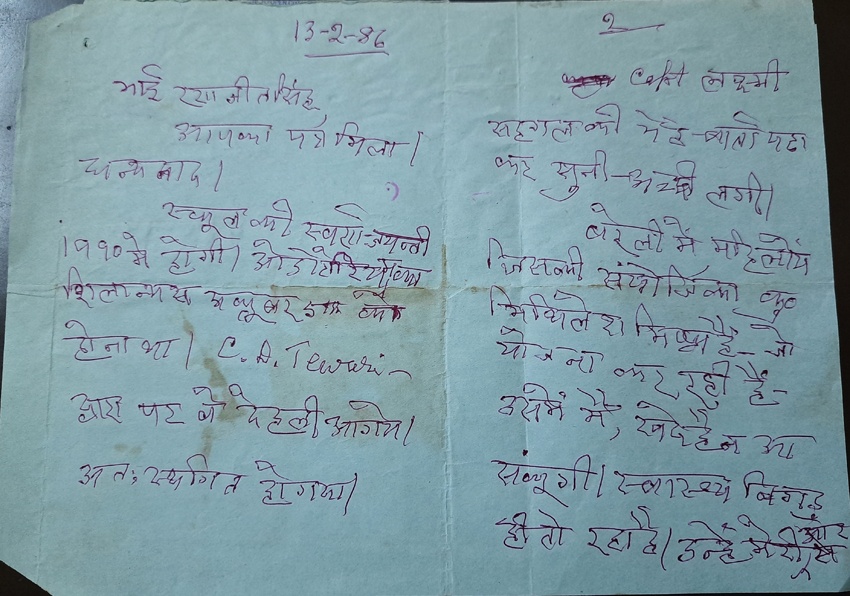 13-2-86
भाई रणजीतसिंह
आपका पत्र मिला।
धन्यवाद।
स्कूल की स्वर्ण-जयन्ती
१९९० में होगी। ओडीटोरियम का
शिलान्यास अक्टूबर को
होना था। C. A. Tewari-
द्वारा पर वे देहली आगये।
अतः स्थगित होगया।
२
Capt लक्ष्मी
सहगल की भेंट-वार्ता पढ़
कर सुनी-अच्छी लगी।
बरेली में
जिसकी संयोजिका
मिथिलेश मिश्र हैं- जो
योजना कर रही हैं-
उसमें मैं, खेद है न आ
सकूंगी। स्वास्थ्य बिगड़
ही तो रहा है। उन्हें मेरी ओर